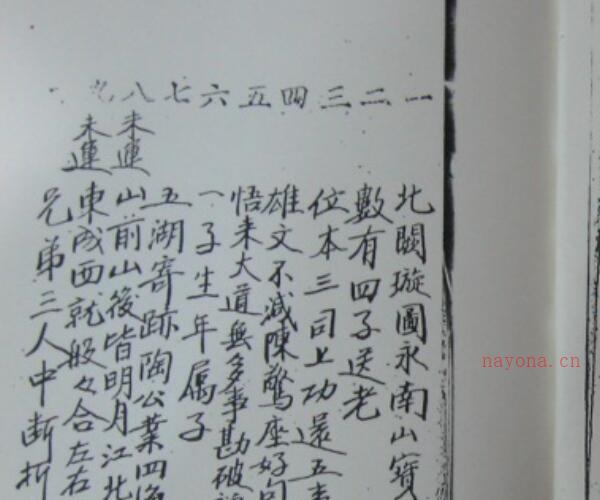 一二三四五六七八九
北闕璇圖永南山寶
數有四子送老
位本三司上功還五
雄文不減陳驚座好句
悟来大道無多事勘破
一子生年属子
五湖寄跡陶公業四海
未連
山前山後皆明月江北
未連
東成西就般々合左右
兄弟三人中断折
nayona.cn